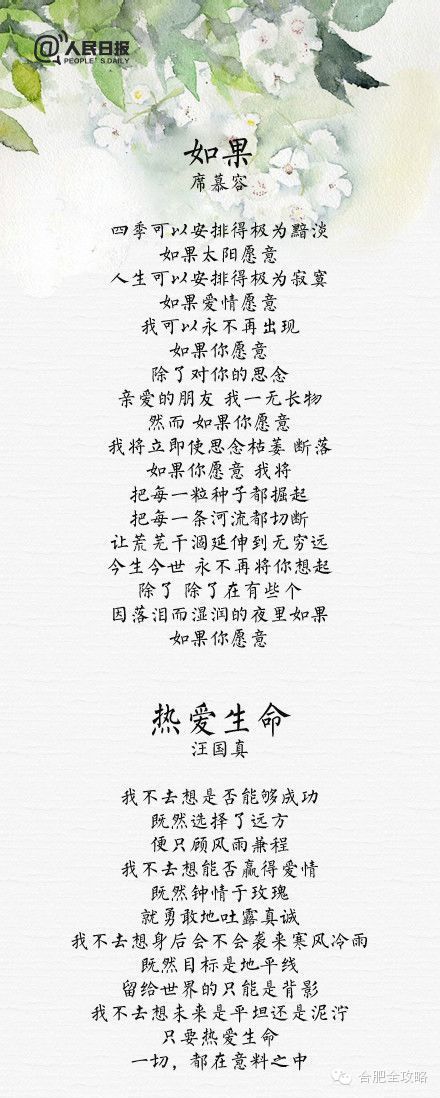 @人民日报
PEOPLE'S DAILY
如果
席慕容
四季可以安排得极为黯淡
如果太阳愿意
人生可以安排得极为寂寞
如果爱情愿意
我可以永不再出现
如果你愿意
除了对你的思念
亲爱的朋友 我一无长物
然而 如果你愿意
我将立即使思念枯萎 断落
如果你愿意 我将
把每一粒种子都掘起
把每一条河流都切断
让荒芜干涸延伸到无穷远
今生今世 永不再将你想起
除了 除了在有些个
因落泪而湿润的夜里如果
如果你愿意
热爱生命
汪国真
我不去想是否能够成功
既然选择了远方
便只顾风雨兼程
我不去想能否赢得爱情
既然钟情于玫瑰
就勇敢地吐露真诚
我不去想身后会不会袭来寒风冷雨
既然目标是地平线
留给世界的只能是背影
我不去想未来是平坦还是泥泞
只要热爱生命
一切，都在意料之中
合肥全攻略